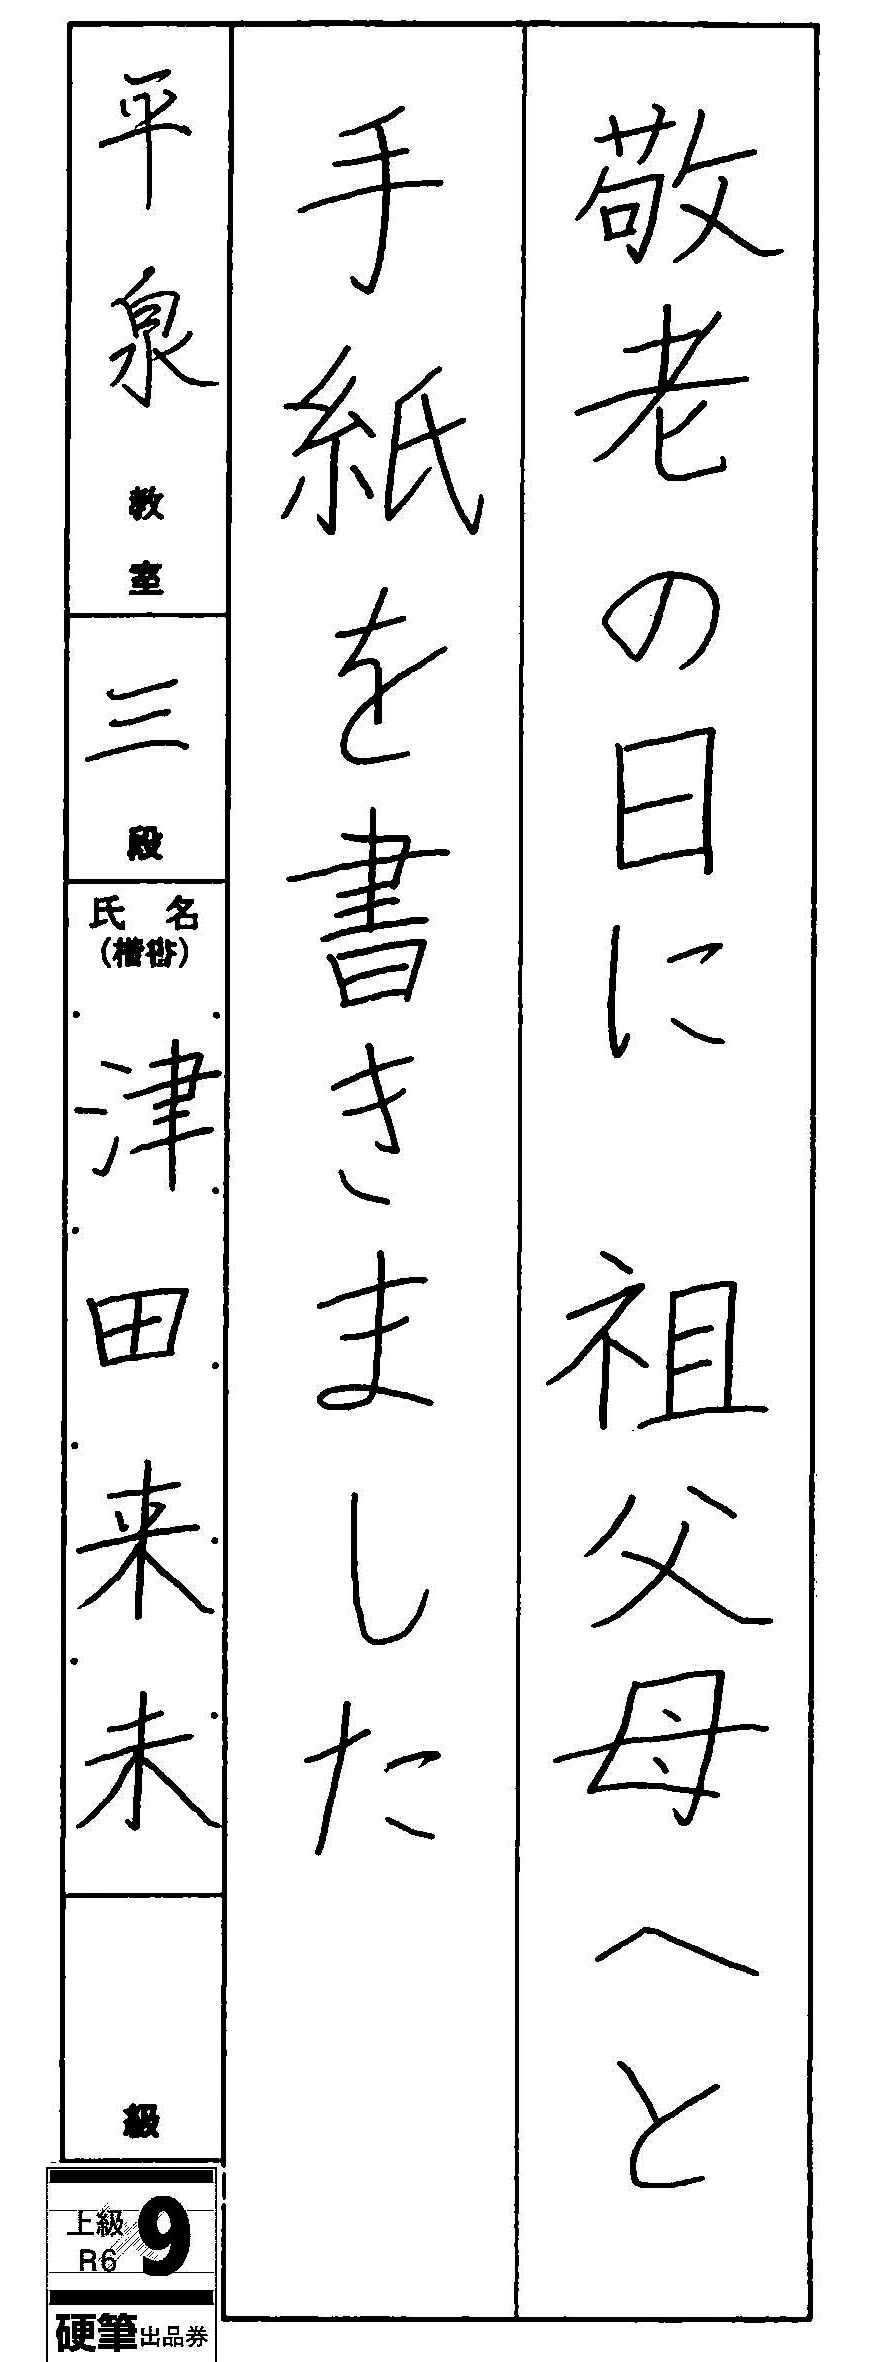 敬老の日に　祖父母へと
手紙を書きました
平泉教室
三段
氏名
（楷書）
津田来未
級
上級
R6
9
硬筆出品券